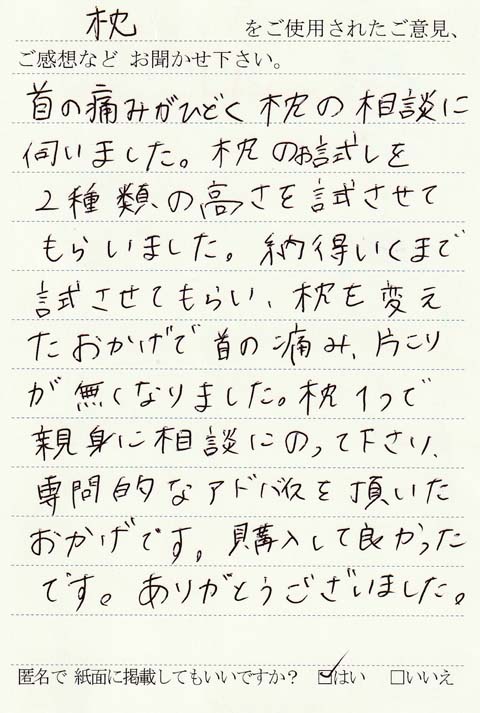 枕 をご使用されたご意見、
ご感想など お聞かせ下さい。
首の痛みがひどく枕の相談に
伺いました。枕のお試しを
2種類の高さを試させて
もらいました。納得いくまで
試させてもらい、枕を変え
たおかげで首の痛み、片こり
が無くなりました。枕1つで
親身に相談にのって下さり、
専問的なアドバイスを頂いた
おかげです。購入して良かった
です。ありがとうございました。
匿名で 紙面に掲載してもいいですか? ☑はい □いいえ